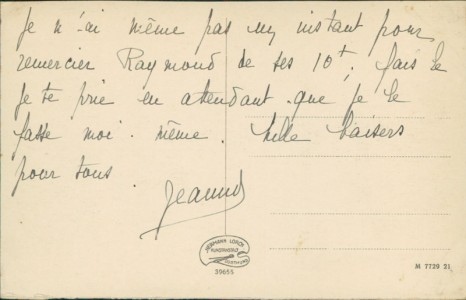 Je n'ai même pas un instant pour
remercier Raymond de ses 10t; fais le
je te prie en attendant que je le
fasse moi-même. Mille baisers
pour tous.
Jeanne
HERMANN LORCH
KUNSTANSTALT
DORTMUND
39655 M 7729 21